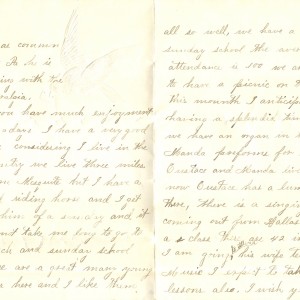 as common
As he is
ing with the
algia.
you have much enjoyment
adays I have a very good
considering I live in the
ntry we live three miles
om Mesquite but I have a
d riding horse and I get
him of a sunday and it
ont take me long to go to
rch and sunday school
re are a great many young
s here and I like them
all so well, we have a
sunday school the ave
attendance is 100 we a
to have a picnic on
this mounth I anticip
having a splendid tim
we have an organ in
Manda performs for
Eustace and Manda liv
now Eustace has a
There, there is a singi
coming out from Dallas
a class there are 42 in
I am going his wife te
Music I expect to tak
lessons also. I wish y